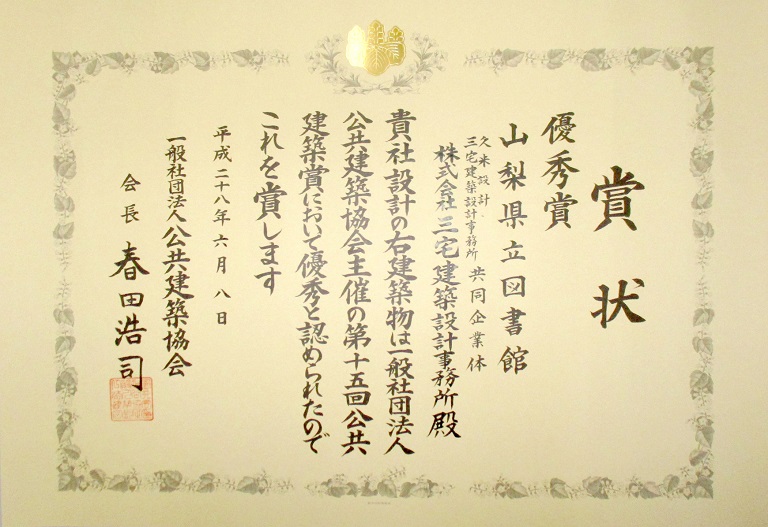 賞状
優秀賞
山梨県立図書館
久米設計・
三宅建築設計事務所
共同企業体
株式会社三宅建築設計事務所殿
貴社設計の右建築物は一般社団法人
公共建築協会主催の第十五回公共
建築賞において優秀と認められたので
これを賞します
平成二十八年六月八日
一般社団法人公共建築協会
会長 春田浩司